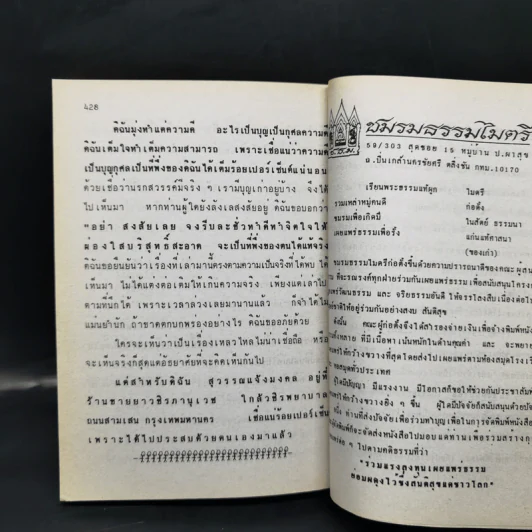 428
ดิฉันมุ่งทำแต่ความดี อะไรเป็นบุญเป็นกุศลความดี
ดิฉันเต็มใจทำเต็มความสามารถ เพราะเชื่อแน่ว่าความดี
เป็นบุญกุศลเป็นที่พึ่งของดิฉันได้เต็มร้อยเปอร์เซ็นต์แน่นอน
ด้วยเชื่อว่านรกสวรรค์มีจริง ๆ เรามีบุญเก่าอยู่บ้าง จึงได้
ไปเห็นมา หากท่านผู้ใดยังลังเลสงสัยอยู่ ดิฉันขอบอกว่า
"อย่า สงสัยเลย จงรีบละชั่วทำดีทำจิตใจให้
ผ่องใสบริสุทธิ์สะอาด จะเป็นที่พึ่งของตนได้แท้จริง
ดิฉันขอยืนยันว่าเรื่องที่เล่ามานี้ตรงตามความเป็นจริงที่ได้พบ ได้
เห็นมา ไม่ได้แต่งต่อเติมให้เกินความจริง เพียงแต่เล่าไป
ตามที่นึกได้ เพราะเวลาล่วงเลยมานานแล้ว ก็จำได้ไม่
แม่นยำนัก ถ้าขาดตกบกพร่องอย่างไร ดิฉันขออภัยด้วย
ใครจะเห็นว่าเป็นเรื่องเหลวไหลไม่น่าเชื่อถือ หรือ
จะเห็นจริงก็สุดแต่อัธยาศัยที่จะคิดเห็นกันไป
แต่สำหรับดิฉัน สุวรรณแจ้งมงคล อยู่ที่
ร้านขายยาวชิรภานุเวช ใกล้วชิรพยาบาล
ถนนสามเสน กรุงเทพมหานคร เชื่อแน่ร้อยเปอร์เซ็น
เพราะได้ไปประสบด้วยตนเองมาแล้ว
ชมรมธรรมไมตรี
59/303 สุดซอย 15 หมู่บ้าน ป.ผาสุ
ถ.ปิ่นเกล้านครชัยศรี ตลิ่งชัน กทม.10170
เรียนพระธรรมแท้ผูก ไมตรี
รวมเหล่าหมู่คนดี ก่อตั้ง
ชมรมเพื่อเกิดมี ในสัตย์ ธรรมนา
เผยแพร่ธรรมเพื่อรั้ง แก่นแท้ศาสนา
(ของเก่า)
ชมรมธรรมไมตรีก่อตั้งขึ้นด้วยความปรารถนาดีของคณะ
ที่จะรณรงค์ทุกฝ่ายร่วมกันเผยแพร่ธรรมเพื่อสนับสนุนโครง
วัฒนธรรม และ จริยธรรมอันดี ให้ธรรโลงสืบเนื่องต่อไป
ให้อยู่ร่วมกันอย่างสงบ สันติสุข
ดังนั้น คณะผู้ก่อตั้งจึงได้สำรองจ่ายเงินเพื่อจ้างพิมพ์หนังสือ
ที่มีเนื้อหาเน้นหนักในด้านคุณค่า และ จะพยายาม
ให้กว้างขวางที่สุดโดยส่งไปเผยแพร่ตามห้องสมุดโรงเรียน
สมุดทั่วประเทศ
ผู้ใดมีปัญญา มีแรงงาน มีโอกาสก็ขอให้ช่วยกันประชาสัมพันธ์
ให้กว้างขวางยิ่ง ๆ ขึ้น ผู้ใดมีปัจจัยก็สนับสนุนด้วยปัจจัย
ท่านที่ส่งปัจจัยเพื่อร่วมทำบุญ เพื่อในการจัดพิมพ์หนังสือ
ก็จะจัดส่งหนังสือไปมอบแด่ท่านเพื่อร่วมสร้างกุศล
ต่อ ๆ ไปตามคติธรรมที่ว่า
"ร่วมแรงลงทุนเผยแพร่ธรรม
ย่อมผดุงไว้ซึ่งสันติสุขแด่ชาวโลก"